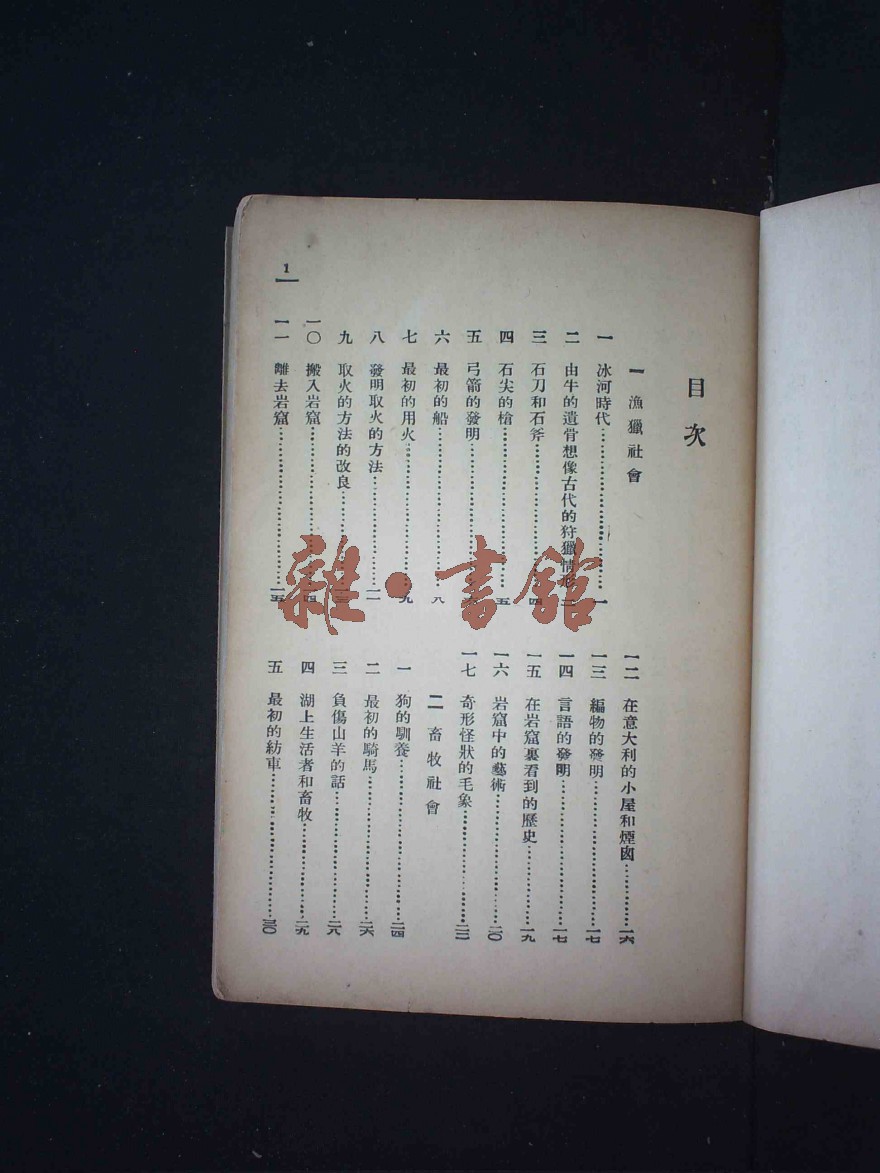 目次
一 漁獵社會
一 冰河時代……一
二 由牛的遺骨想像古代的狩獵情形……二
三 石刀和石斧……四
四 石尖的槍……五
五 弓箭的發明
六 最初的船……八
七 最初的用火……九
八 發明取火的方法……一一
九 取火的方法的改良
一〇 搬入岩窟……一四
一一 離去岩窟……一五
一二 在意大利的小屋和煙囱……一六
一三 編物的發明……一七
一四 言語的發明……一七
一五 在岩窟裏看到的歷史……一九
一六 岩窟中的藝術……二〇
一七 奇形怪狀的毛象……二二
二 畜牧社會
一 狗的馴養……二四
二 最初的騎馬……二六
三 負傷山羊的話……二八
四 湖上生活者和畜牧……二九
五 最初的紡車……三〇
1
雜·書館